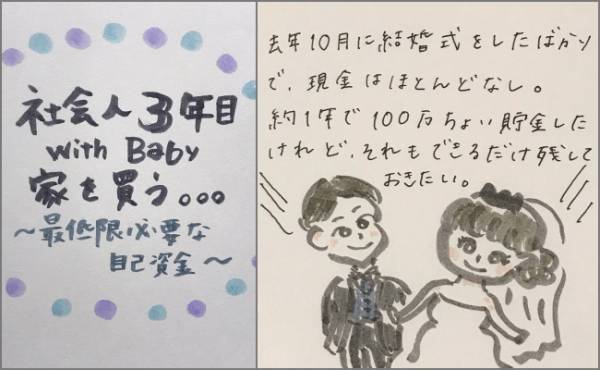 社会人3年目
with Baby
家を買う。。。
～最低限必要な
自己資金～
去年10月に結婚式をしたばかり
で、現金はほとんどなし。
約1年で100万ちょい貯金した
けれど、それもできるだけ残して
おきたい。